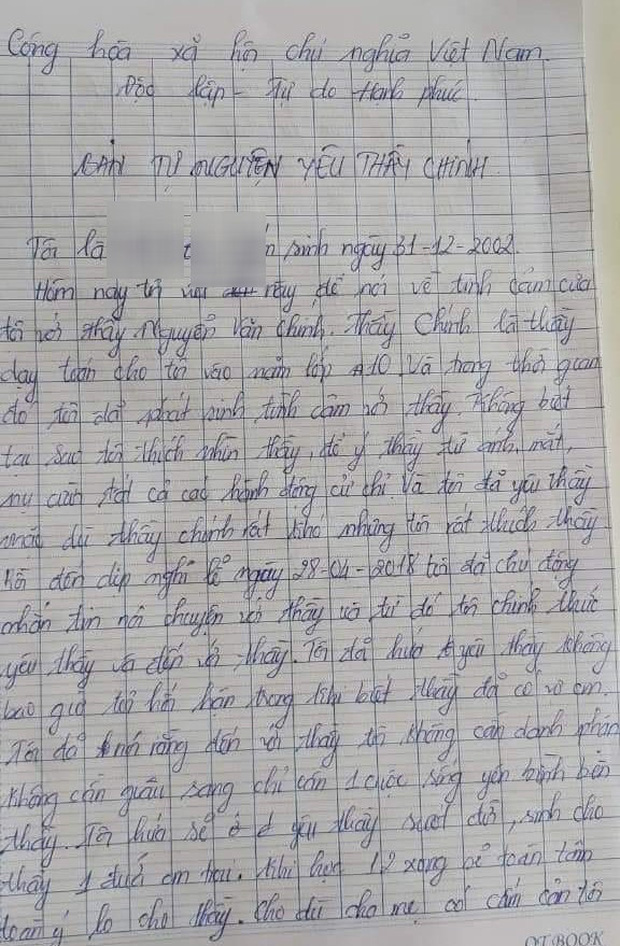 Cộng hòa xã hôn chủ nghĩa Việt Nam.
Độc lập - Tự do Hanh phúc.
BẢN TỰ NGUYỆN YÊU THẦY CHÍNH
Tôi là sinh ngày 31-12-2002.
Hôm nay tôi này để nói về tình cảm của
tôi với thầy Nguyễn Văn Chinh. Thầy Chính là thầy
dạy toán cho tôi vào năm lớp 10. Và trong thời gian
đó tôi đã phát sinh tình cảm với thầy. Không biết
tại sao tôi thích nhìn thầy, để ý thầy từ ánh mắt,
nụ cười tất cả các hành động cử chỉ. Và tôi đã yêu thầy
mặc dù thầy chính rất khó nhưng tôi rất thích thầy.
đến dịp nghỉ lễ ngày 28-04-2018 tôi đã chủ động
nhắn tin nói chuyện với thầy và từ đó tôi chính thức
yêu thầy và đến với thầy. Tôi đã hứa yêu thầy không
bao giờ tôi hối hận trong khi biết thầy đã có vợ con.
Tôi đã nói rằng đến với thầy tôi không cần danh phận
không cần giàu sang chỉ cần 1 cuộc sống yên bình bên
thầy. Tôi hứa sẽ ở yêu thầy suốt đời, sinh cho
thầy 1 đứa con trai. Khi học 12 xong sẽ toàn tâm
toàn ý lo cho thầy. Cho dù cha mẹ có cấm cản tôi